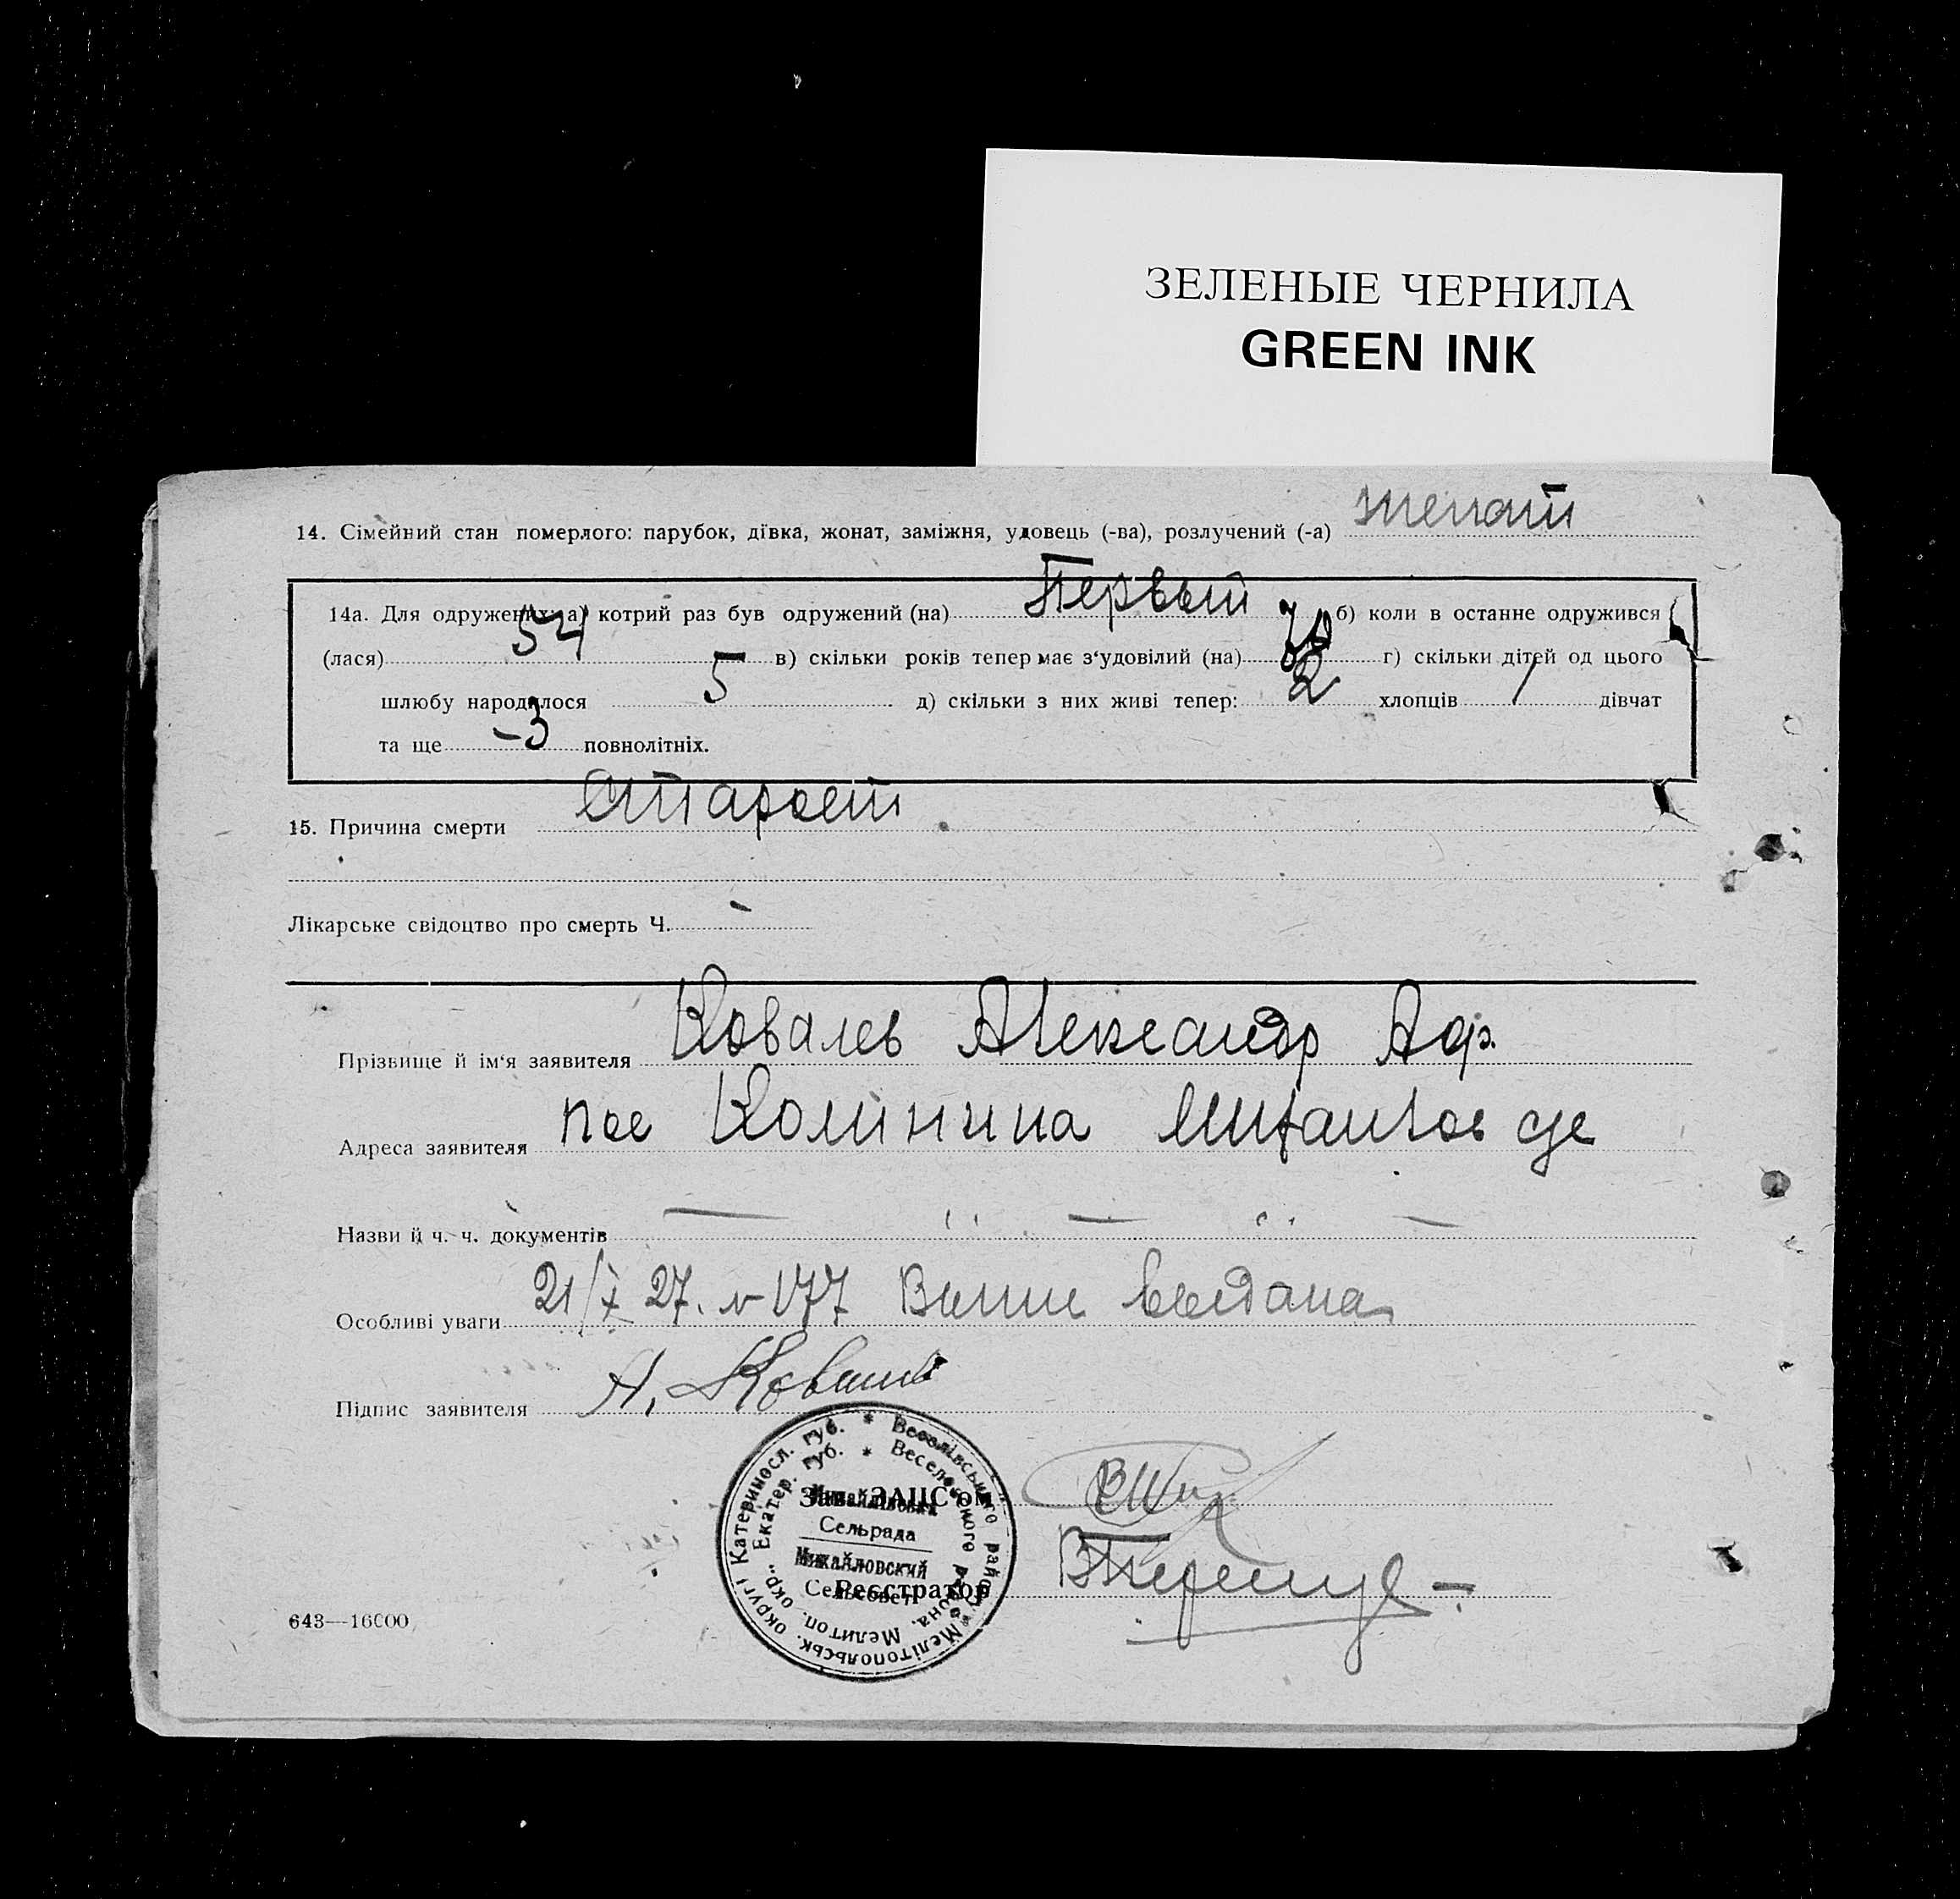 ЗЕЛЕНЫЕ ЧЕРНИЛА
GREEN INK
14. Сімейний стан померлого: парубок, дівка, жонат, заміжня, удовець (-ва), розлучений (-а) женат
14а. Для одружених: а) котрий раз був одружений (на) Первый б) коли в останне одружився
(лася) в) скільки років тепер має з'удовілий (на) г) скільки дітей од цього
шлюбу народилося 5 д) скільки з них живі тепер: 2 хлопців 1 дівчат
та ще -3 повнолітніх.
15. Причина смерти Старост
Лікарське свідоцтво про смерть Ч. -
Прізвище й ім'я заявителя Ковалев Александр
Адреса заявителя пос Калинина Михайлов с/с
Назви й ч. ч. документів — " — " —
Особливі уваги 21/X 27. № 177 Выпис выдана
Підпис заявителя А. Ковалев
* Веселівського району Мелітопольськ. округі Катеринosл. губ.
* Веселовского района, Мелитоп. окр., Екатер. губ.
Зав. ЗАГС'ом
Михайлівська
Сельрада
Михайловский
Сельсовет
Реєстратор
643—16000